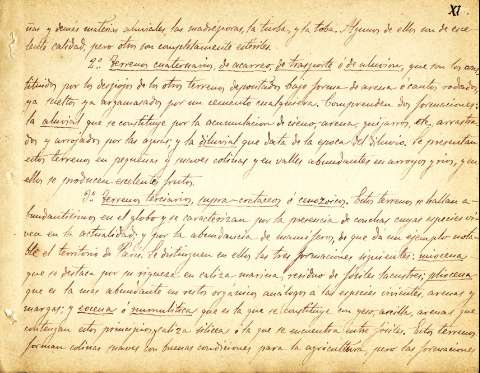 XI
ñas y demas materias aluviales, las madréporas, la turba, y la toba. Algunos de ellos son de exce
lente calidad, pero otros son completamente estériles.
2.º Terrenos cuaternarios, de acarreo, de trasporte ó de aluvion, que son los cons
tituidos por los despojos de los otros terrenos depositados bajo forma de arena ó cantos rodados,
ya sueltos ya argamasados por un cemento cualquiera. Comprenden dos formaciones:
la aluvial que se constituye por la acumulacion de cieno, arena, guijarros, etc, arrastra
dos y arrojados por las aguas, y la diluvial que data de la epoca del diluvio. Se presentan
estos terrenos en pequeñas y suaves colinas y en valles abundantes en arroyos y rios, y en
ellos se producen excelentes frutos.
3.º Terrenos terciarios, supra-cretáceos ó cenozoicos. Estos terrenos se hallan a-
bundantísimos en el globo y se caracterizan por la presencia de conchas cuyas especies vi-
ven en la actualidad, y por la abundancia de mamíferos, de que da un ejemplo nota-
ble el territorio de Paris. Se distinguen en ellos las tres formaciones siguientes: miocena
que se destaca por su riqueza en caliza marina, residuo de fosiles lacustres; pliocena
que es la más abundante en restos orgánicos análogos a las especies vivientes, arenas y
margas; y eocena ó numulítica que es la que se constituye con yeso, arcilla, arenas que
contengan estos principios, caliza silicea ó la que se encuentra entre fosiles. Estos terrenos
forman colinas suaves con buenas condiciones para la agricultura, pero las formaciones